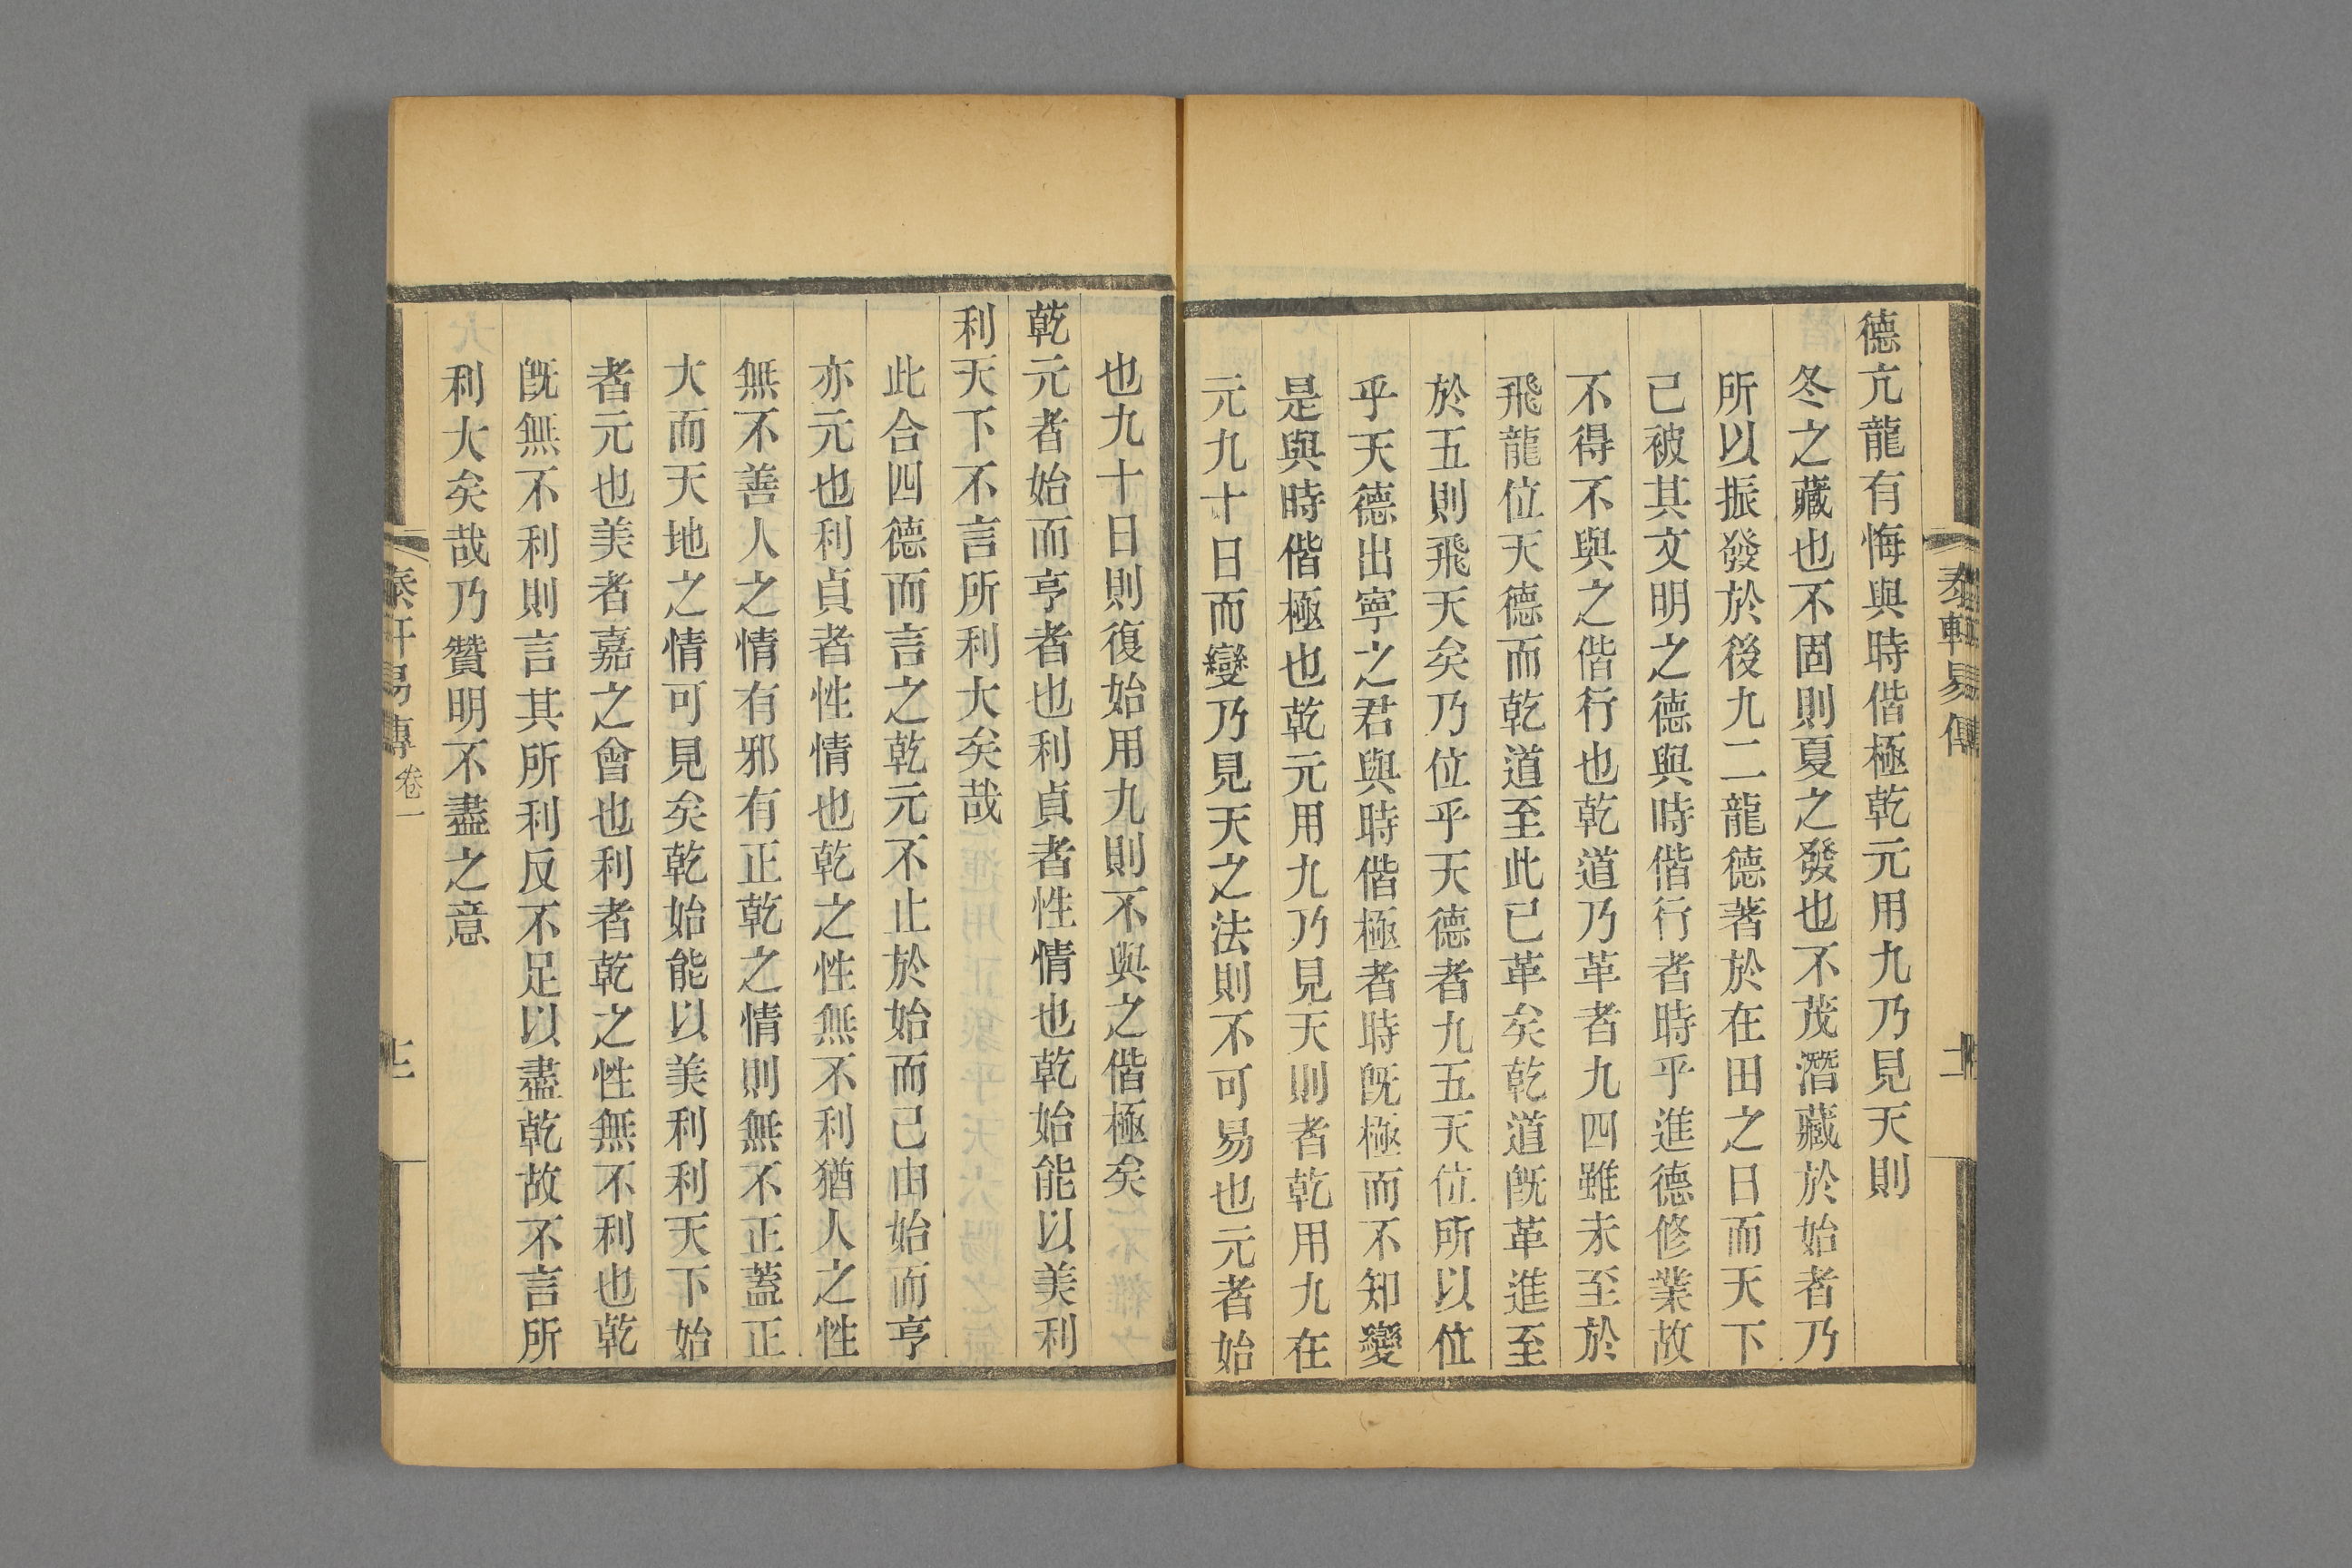 德亢龍有悔與時偕極乾元用九乃見天則
冬之藏也不固則夏之發也不茂潛藏於始者乃
所以振發於後九二龍德著於在田之日而天下
已被其文明之德與時偕行者時乎進德修業故
不得不與之偕行也乾道乃革者九四雖未至於
飛龍位天德而乾道至此已革矣乾道旣革進至
於五則飛天矣乃位乎天德者九五天位所以位
乎天德出寧之君與時偕極者時旣極而不知變
是與時偕極也乾元用九乃見天則者乾用九在
元九十日而變乃見天之法則不可易也元者始
也九十日則復始用九則不與之偕極矣
乾元者始而亨者也利貞者性情也乾始能以美利
利天下不言所利大矣哉
此合四德而言之乾元不止於始而已由始而亨
亦元也利貞者性情也乾之性無不利猶人之性
無不善人之情有邪有正乾之情則無不正蓋正
大而天地之情可見矣乾始能以美利利天下始
者元也美者嘉之會也利者乾之性無不利也乾
旣無不利則言其所利反不足以盡乾故不言所
利大矣哉乃贊明不盡之意
泰軒易傳
泰軒易傳 卷一